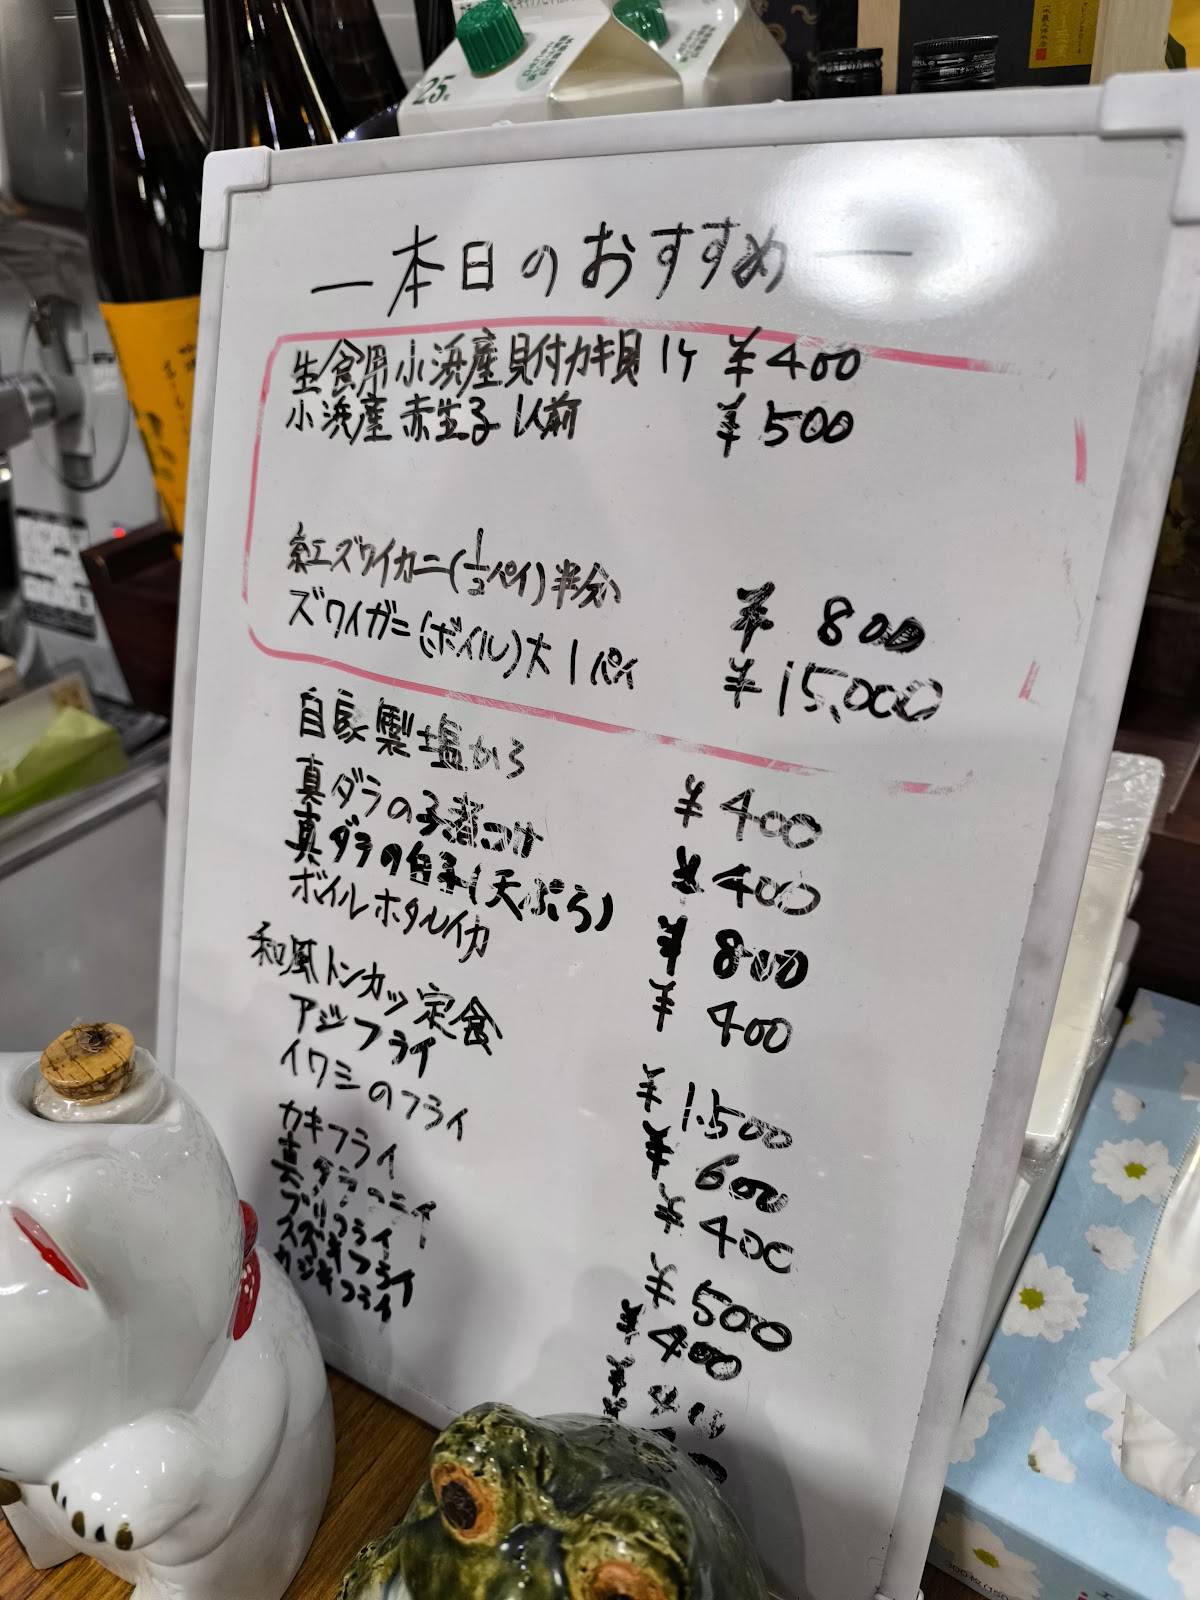 25
ー本日のおすすめー
生食用小浜産貝付カキ貝 1ケ ¥400
小浜産 赤生子 1人前 ¥500
紅ズワイカニ(1/2パイ)半分 ¥800
ズワイガニ(ボイル)大 1パイ ¥15,000
自家製塩から ¥400
真ダラの子煮つけ ¥400
真ダラの白子(天ぷら) ¥800
ボイルホタルイカ ¥400
和風トンカツ定食 ¥1,500
アジフライ ¥600
イワシのフライ ¥400
カキフライ ¥500
真ダラ ¥400
ブリフライ
スズキフライ
カジキフライ